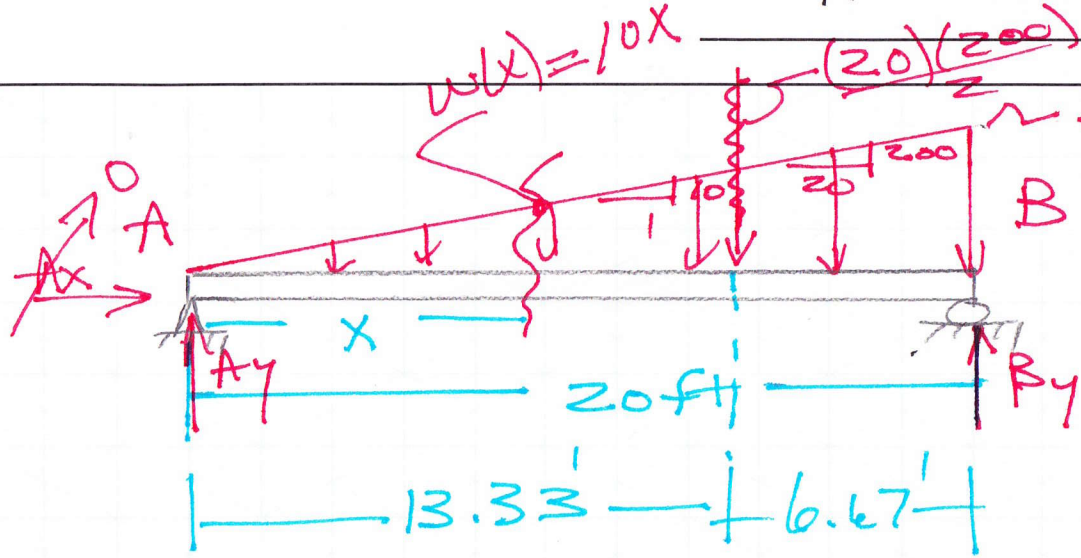 w(x)=10x
(20)(200)
2
0
A
Ax
10
1
20
200
B
x
Ay
20 ft
By
13.33'
6.67'